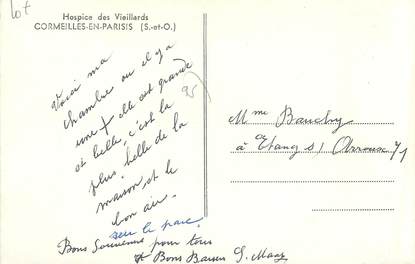 lot
Hospice des Vieillards
CORMEILLES-EN-PARISIS (S.-et-O.)
Voici ma
chambre ou il y a
une + elle est grande
et belle, c'est la
plus belle de la
maison et le
bon air.
sur le parc.
Bons Souvenirs pour tous
Bons Baisers G.
95
Mme Bauchy
à Etang s/ Arroux 71